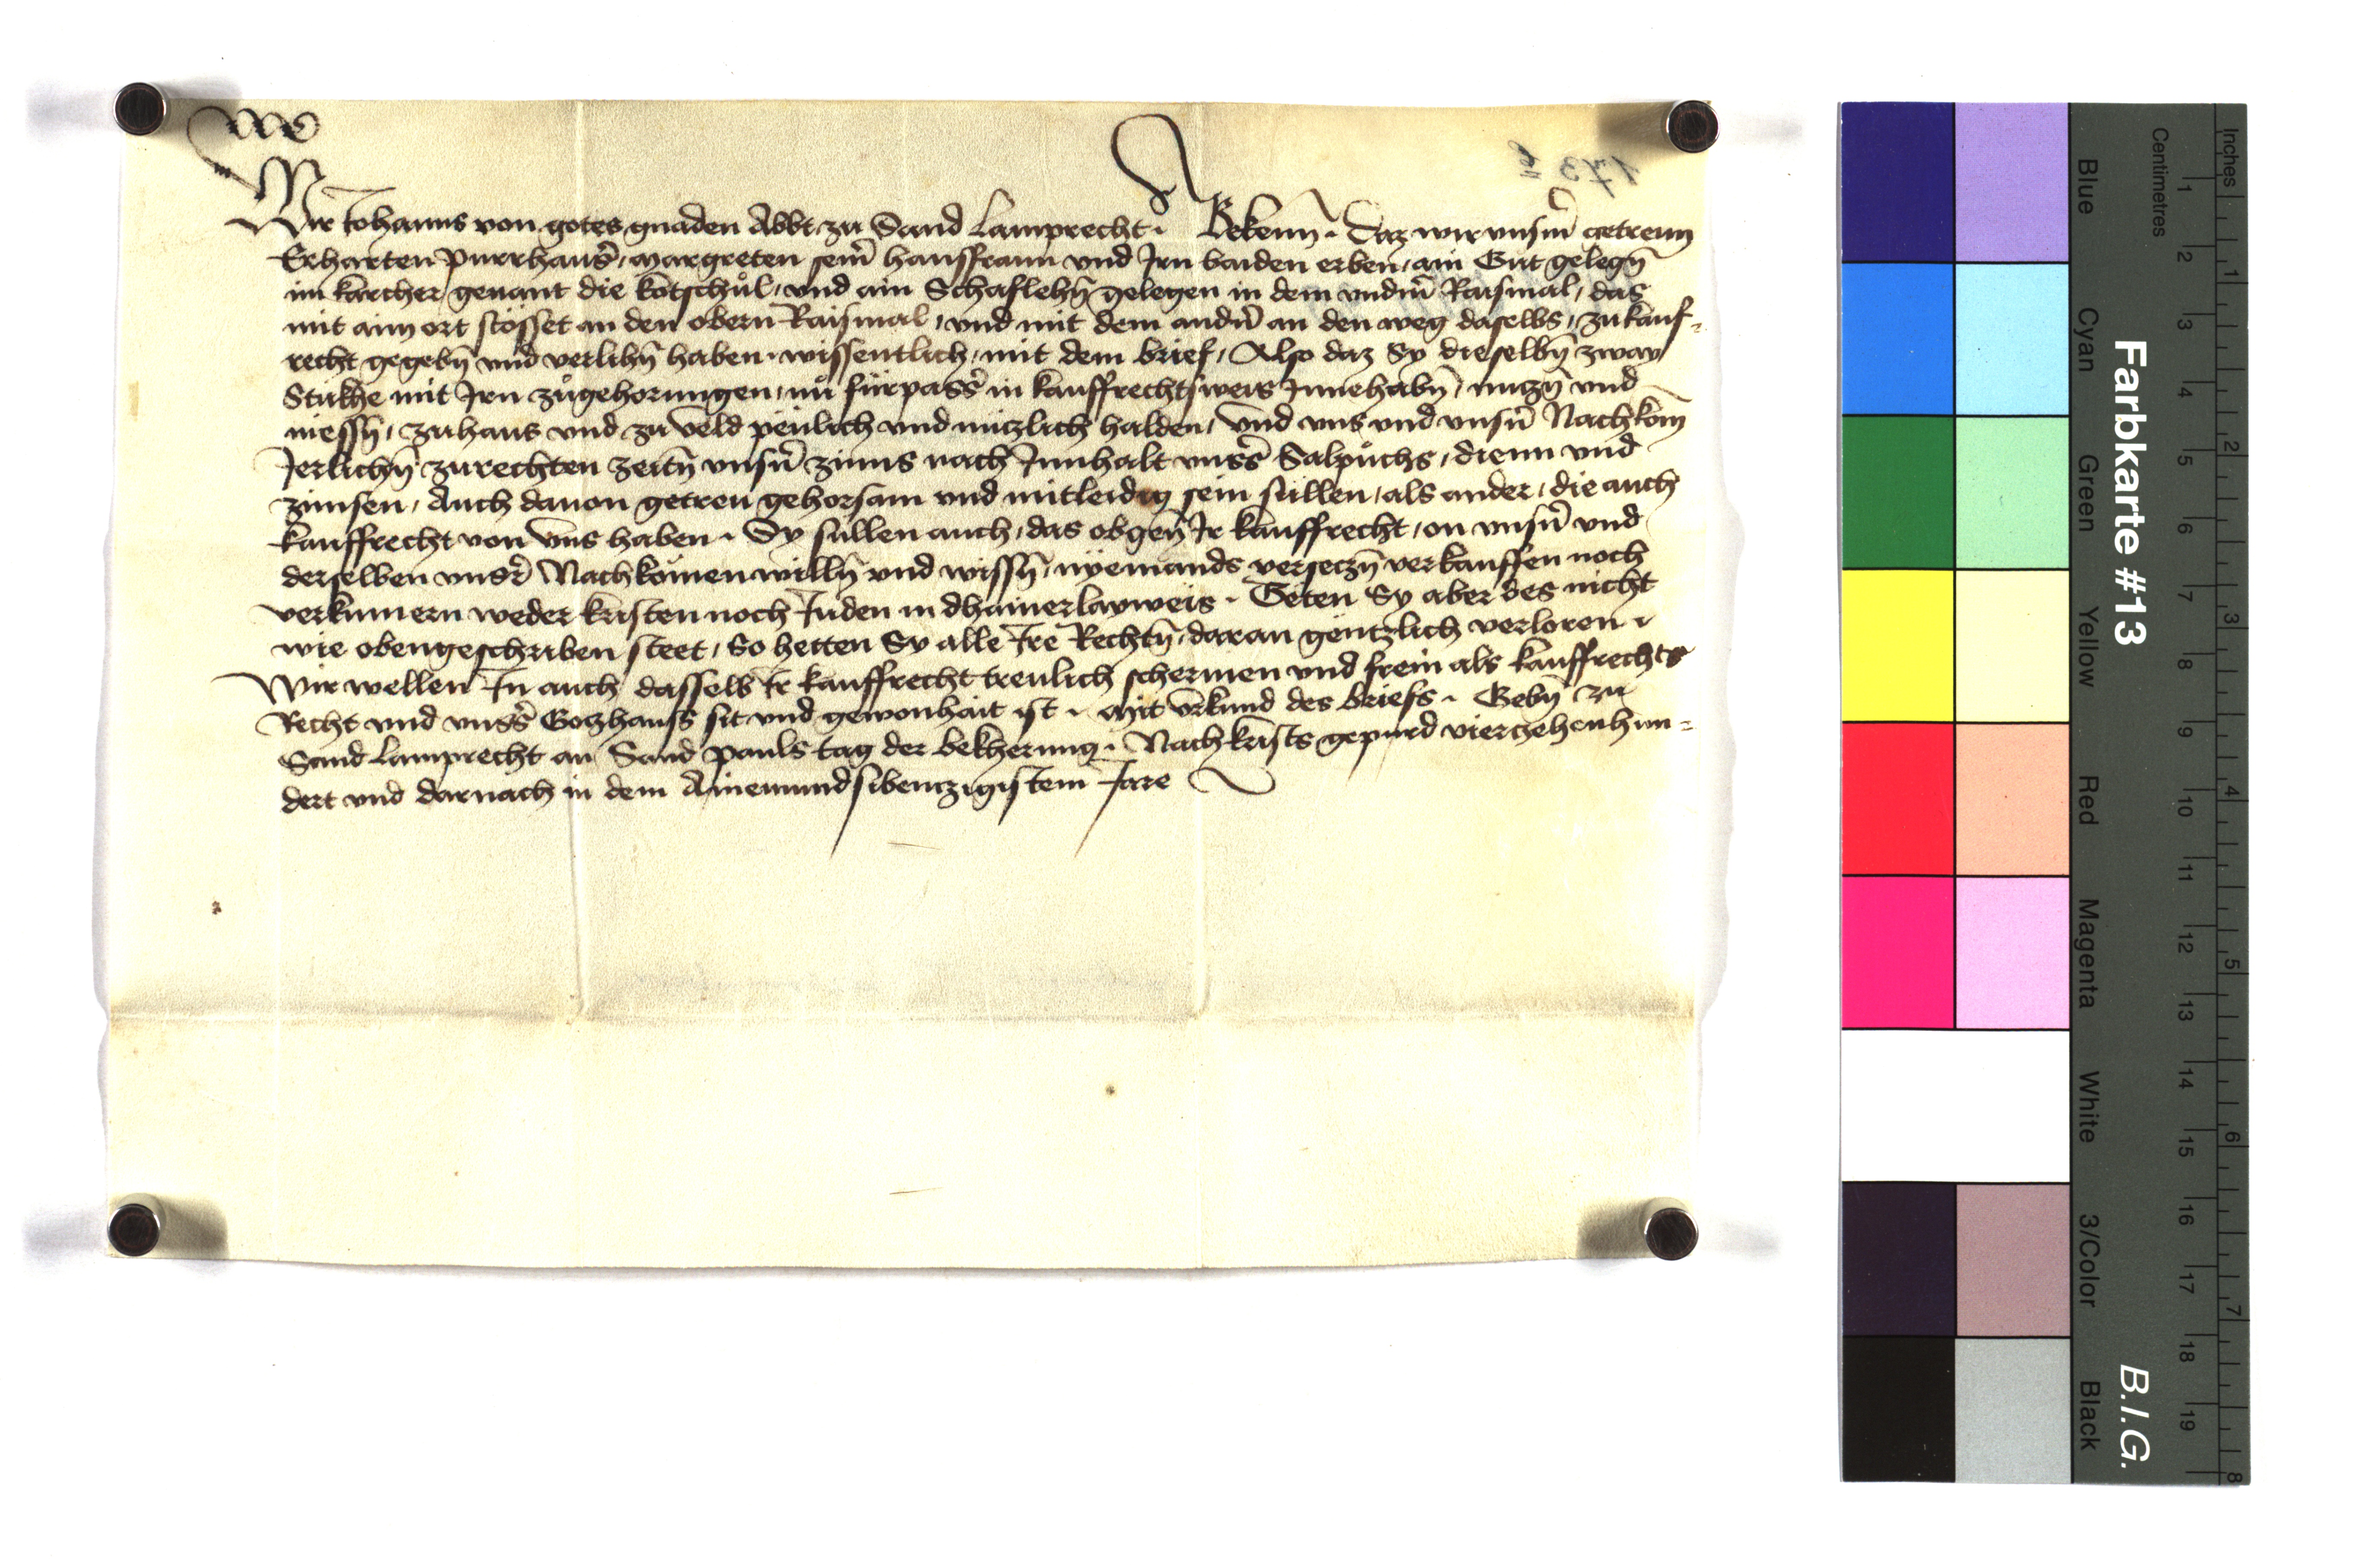 Wir Johanns von gotes gnaden Abbt zu Sand Lamprecht · Bekenn̄ · Daz wir vnsm̄ getrewn
Erharten purrhaus̄, margreten sein̄ hausfraun vnd Jrn baiden erben, ain Gut gelegn̄
im karcher genant die kötschül, vnd ain Schaflehn̄ gelegen in dem vndm̄ Raismal, das
mit aim ort stosset an den obern Raismal, vnd mit dem andn̄ an den weg daselbs, zu kauf-
recht gegebn̄ vnd verlihn̄ haben · wissentlich, mit dem brief, Also daz Sy dieselbn̄ zway
Stükhe mit Jrn zůgehorungen, nů fürpass̄ in kauffrechtsweis Jnnehabn̄, nuczn̄ vnd
niessn̄, zuhaus vnd zu veld peulich vnd nüczlich halden, Vnd vns vnd vnsn̄ Nachkom̄
Jerlichn̄ zurechten zeitn̄ vnsn̄ zinns nach Jnnhalt vnss̄ Salpůchs, dienn vnd
zinnsen, Auch dauon getreu gehorsam vnd mitleidig sein süllen, als ander, die auch
kauffrecht von vns haben · Sy süllen auch, das obgen̄ Jr kauffrecht, on vnsn̄ vnd
derselben vnsr̄ Nachkömen willn̄ vnd wissn̄, nyemands verseczn̄ verkauffen noch
verkumern weder kristen noch Juden in dhainerlayweis · Teten Sy aber des nicht
wie obengeschriben steet, So hetten Sy alle Jre Rechtn̄, daran gentzlich verloren ·
Wir wellen Jn auch dasselb Jr kauffrecht treulich schermen vnd frein als kauffrechts
Recht vnd vnss̄ Goczhauss sit vnd gewonhait ist · Mit vrkund des briefs · Gebn̄ zu
Sand Lamprecht an Sand pauls tag der bekherung · Nach krists gepurd vierzehenhun-
dert vnd darnach in dem Ainenundsibenczigistem Jare
Farbkarte #13
B.I.G.
Inches
Centimetres
Blue
Cyan
Green
Yellow
Red
Magenta
White
3/Color
Black
1 2 3 4 5 6 7 8 9 10 11 12 13 14 15 16 17 18 19
1 2 3 4 5 6 7 8